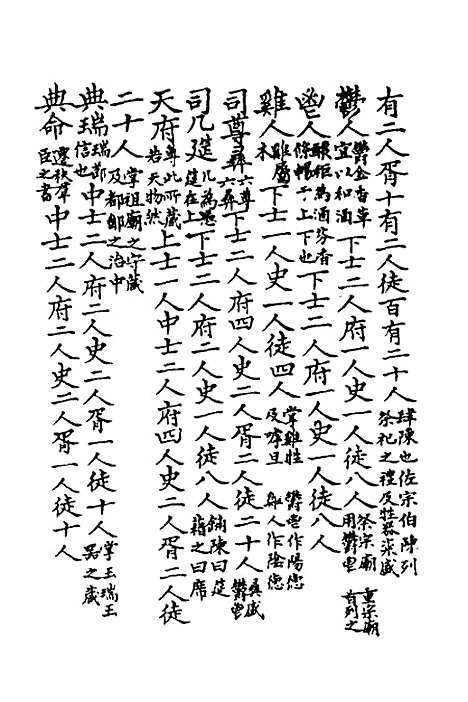 有二人胥十有二人徒百有二十人肆陳也佐宗伯陳列祭祀之禮及牲器粢盛
鬱人鬱金香草宜以和酒下士二人府一人史一人徒八人祭宗廟用鬱鬯重宗廟首列之
鬯人釀秬為酒芬香條暢于上下也下士二人府一人史一人徒八人
雞人雞屬木下士一人史一人徒四人掌雞牲及嘑旦鬱鬯作陽德雞人作陰德
司尊彝六尊六彝下士二人府四人史二人胥二人徒二十人盛鬱鬯
司几筵几為憑筵在上下士二人府二人史一人徒八人鋪陳曰筵藉之曰席
天府尊此所藏若天物然上士一人中士二人府四人史二人胥二人徒
二十人掌祖廟之守藏及都鄙之治中
典瑞瑞節信也中士二人府二人史二人胥一人徒十人掌玉瑞玉器之藏
典命遷秩羣臣之書中士二人府二人史二人胥一人徒十人